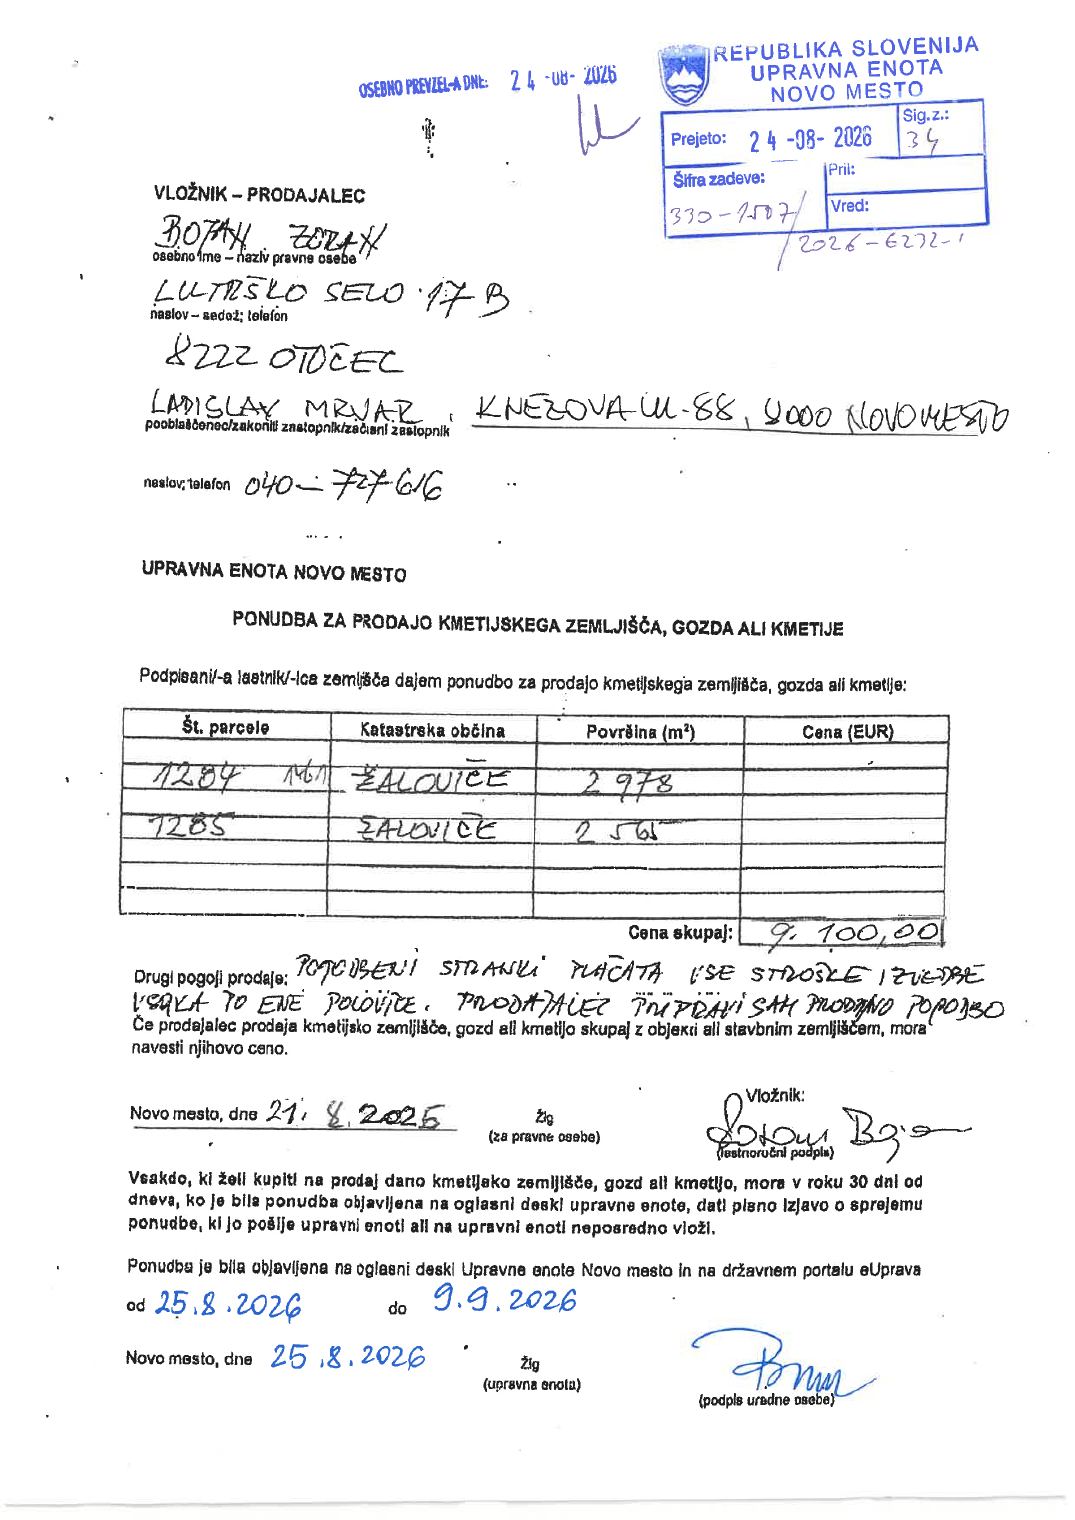 OSEBNO PREVZEL-A DNE: 24-08-2026
REPUBLIKA SLOVENIJA
UPRAVNA ENOTA
NOVO MESTO
Prejeto: 24-08-2026
Sig.z.: 34
Šifra zadeve:
330-1507/
2026-6272-1
Pril:
Vred:
VLOŽNIK – PRODAJALEC
BOJAN ZORAN
osebno ime – naziv pravne osebe
LUTRŠKO SELO 17 B
naslov – sedež; telefon
8222 OTOČEC
LADISLAV MRVAR, KNEZOVA UL-88, 8000 NOVO MESTO
pooblaščenec/zakoniti zastopnik/začasni zastopnik
naslov; telefon 040-727616
UPRAVNA ENOTA NOVO MESTO
PONUDBA ZA PRODAJO KMETIJSKEGA ZEMLJIŠČA, GOZDA ALI KMETIJE
Podpisani/-a lastnik/-ica zemljišča dajem ponudbo za prodajo kmetijskega zemljišča, gozda ali kmetije:
Št. parcele Katastrska občina Površina (m²) Cena (EUR)
1284 1461 ŽALOVIČE 2 978
1285 ŽALOVIČE 2 565
Cena skupaj: 9.100,00
Drugi pogoji prodaje: POGODBENI STRANKI PLAČATA VSE STROŠKE IZVEDBE
VSAKA DO ENE POLOVICE. PRODAJALEC PRIPRAVI SAM PRODAJNO POGODBO
Če prodajalec prodaja kmetijsko zemljišče, gozd ali kmetijo skupaj z objekti ali stavbnim zemljiščem, mora
navesti njihovo ceno.
Novo mesto, dne 21. 8. 2026
Žig
(za pravne osebe)
Vložnik:
(lastnoročni podpis)
Vsakdo, ki želi kupiti na prodaj dano kmetijsko zemljišče, gozd ali kmetijo, mora v roku 30 dni od
dneva, ko je bila ponudba objavljena na oglasni deski upravne enote, dati pisno izjavo o sprejemu
ponudbe, ki jo pošlje upravni enoti ali na upravni enoti neposredno vloži.
Ponudba je bila objavljena na oglasni deski Upravne enote Novo mesto in na državnem portalu eUprava
od 25.8.2026 do 9.9.2026
Novo mesto, dne 25.8.2026
Žig
(upravna enota)
(podpis uradne osebe)